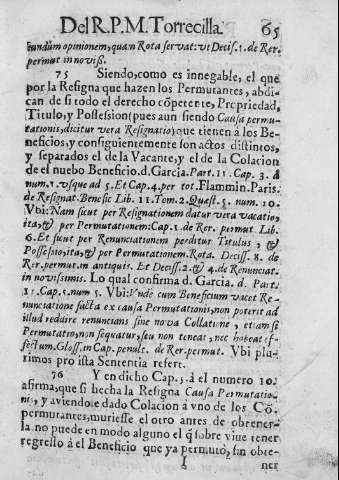 Del R. P. M. Torrecilla. 65
cundùm opinionem, quam Rota servat: vt Decis. 1. de Rer.
permut in noviss.
75 Siendo, como es innegable, el que
por la Resigna que hazen los Permutantes, abdi-
can de si todo el derecho cõpetente, Propriedad,
Titulo, y Possession (pues aun siendo Causa permu-
tationis, dicitur vera Resignatio) que tienen à los Be-
neficios, y consiguientemente son actos distintos,
y separados el de la Vacante, y el de la Colacion
de el nuebo Beneficio. d. Garcia. Part. 11. Cap. 3. à
num. 1. vsque ad 5. Et Cap. 4. per tot. Flammin. Paris.
de Resignat. Benefic Lib. 11. Tom. 2. Quæst. 5. num. 10.
Vbi: Nam sicut per Resignationem datur vera vacatio
ita, & per Permutationem: Cap. 1. de Rer. permut Lib.
6. Et sicut per Renunciationem perditur Titulus, &
Possessio, ita, & per Permutationem. Rota. Deciss. 8. de
Rer. permut. in antiquis. Et Deciss. 2. & 4. de Renunciat.
in novissimis. Lo qual confirma d. Garcia. d. Part.
11. Cap. 1. num 5. Vbi: Vnde cum Beneficium vacet Re-
nunciatione facta ex causa Permutationis, non poterit ad
illud redire renuncians sine nova Collatione, etiam si
Permutatio, non sequatur, seu non teneat, nec habeat ef-
fectum. Gloss. in Cap. penult. de Rer. permut. Vbi plu-
rimos pro ista Sententia refert.
76 Y en dicho Cap. 5. à el numero 10.
afirma, que si hecha la Resigna Causa Permutatio-
nis, y aviendose dado Colacion à vno de los Cõ-
permutantes, muriesse el otro antes de obtener-
la no puede en modo alguno el q̃ sobre viue tener
regresso à el Beneficio que ya permutò, sin obte-
I ner